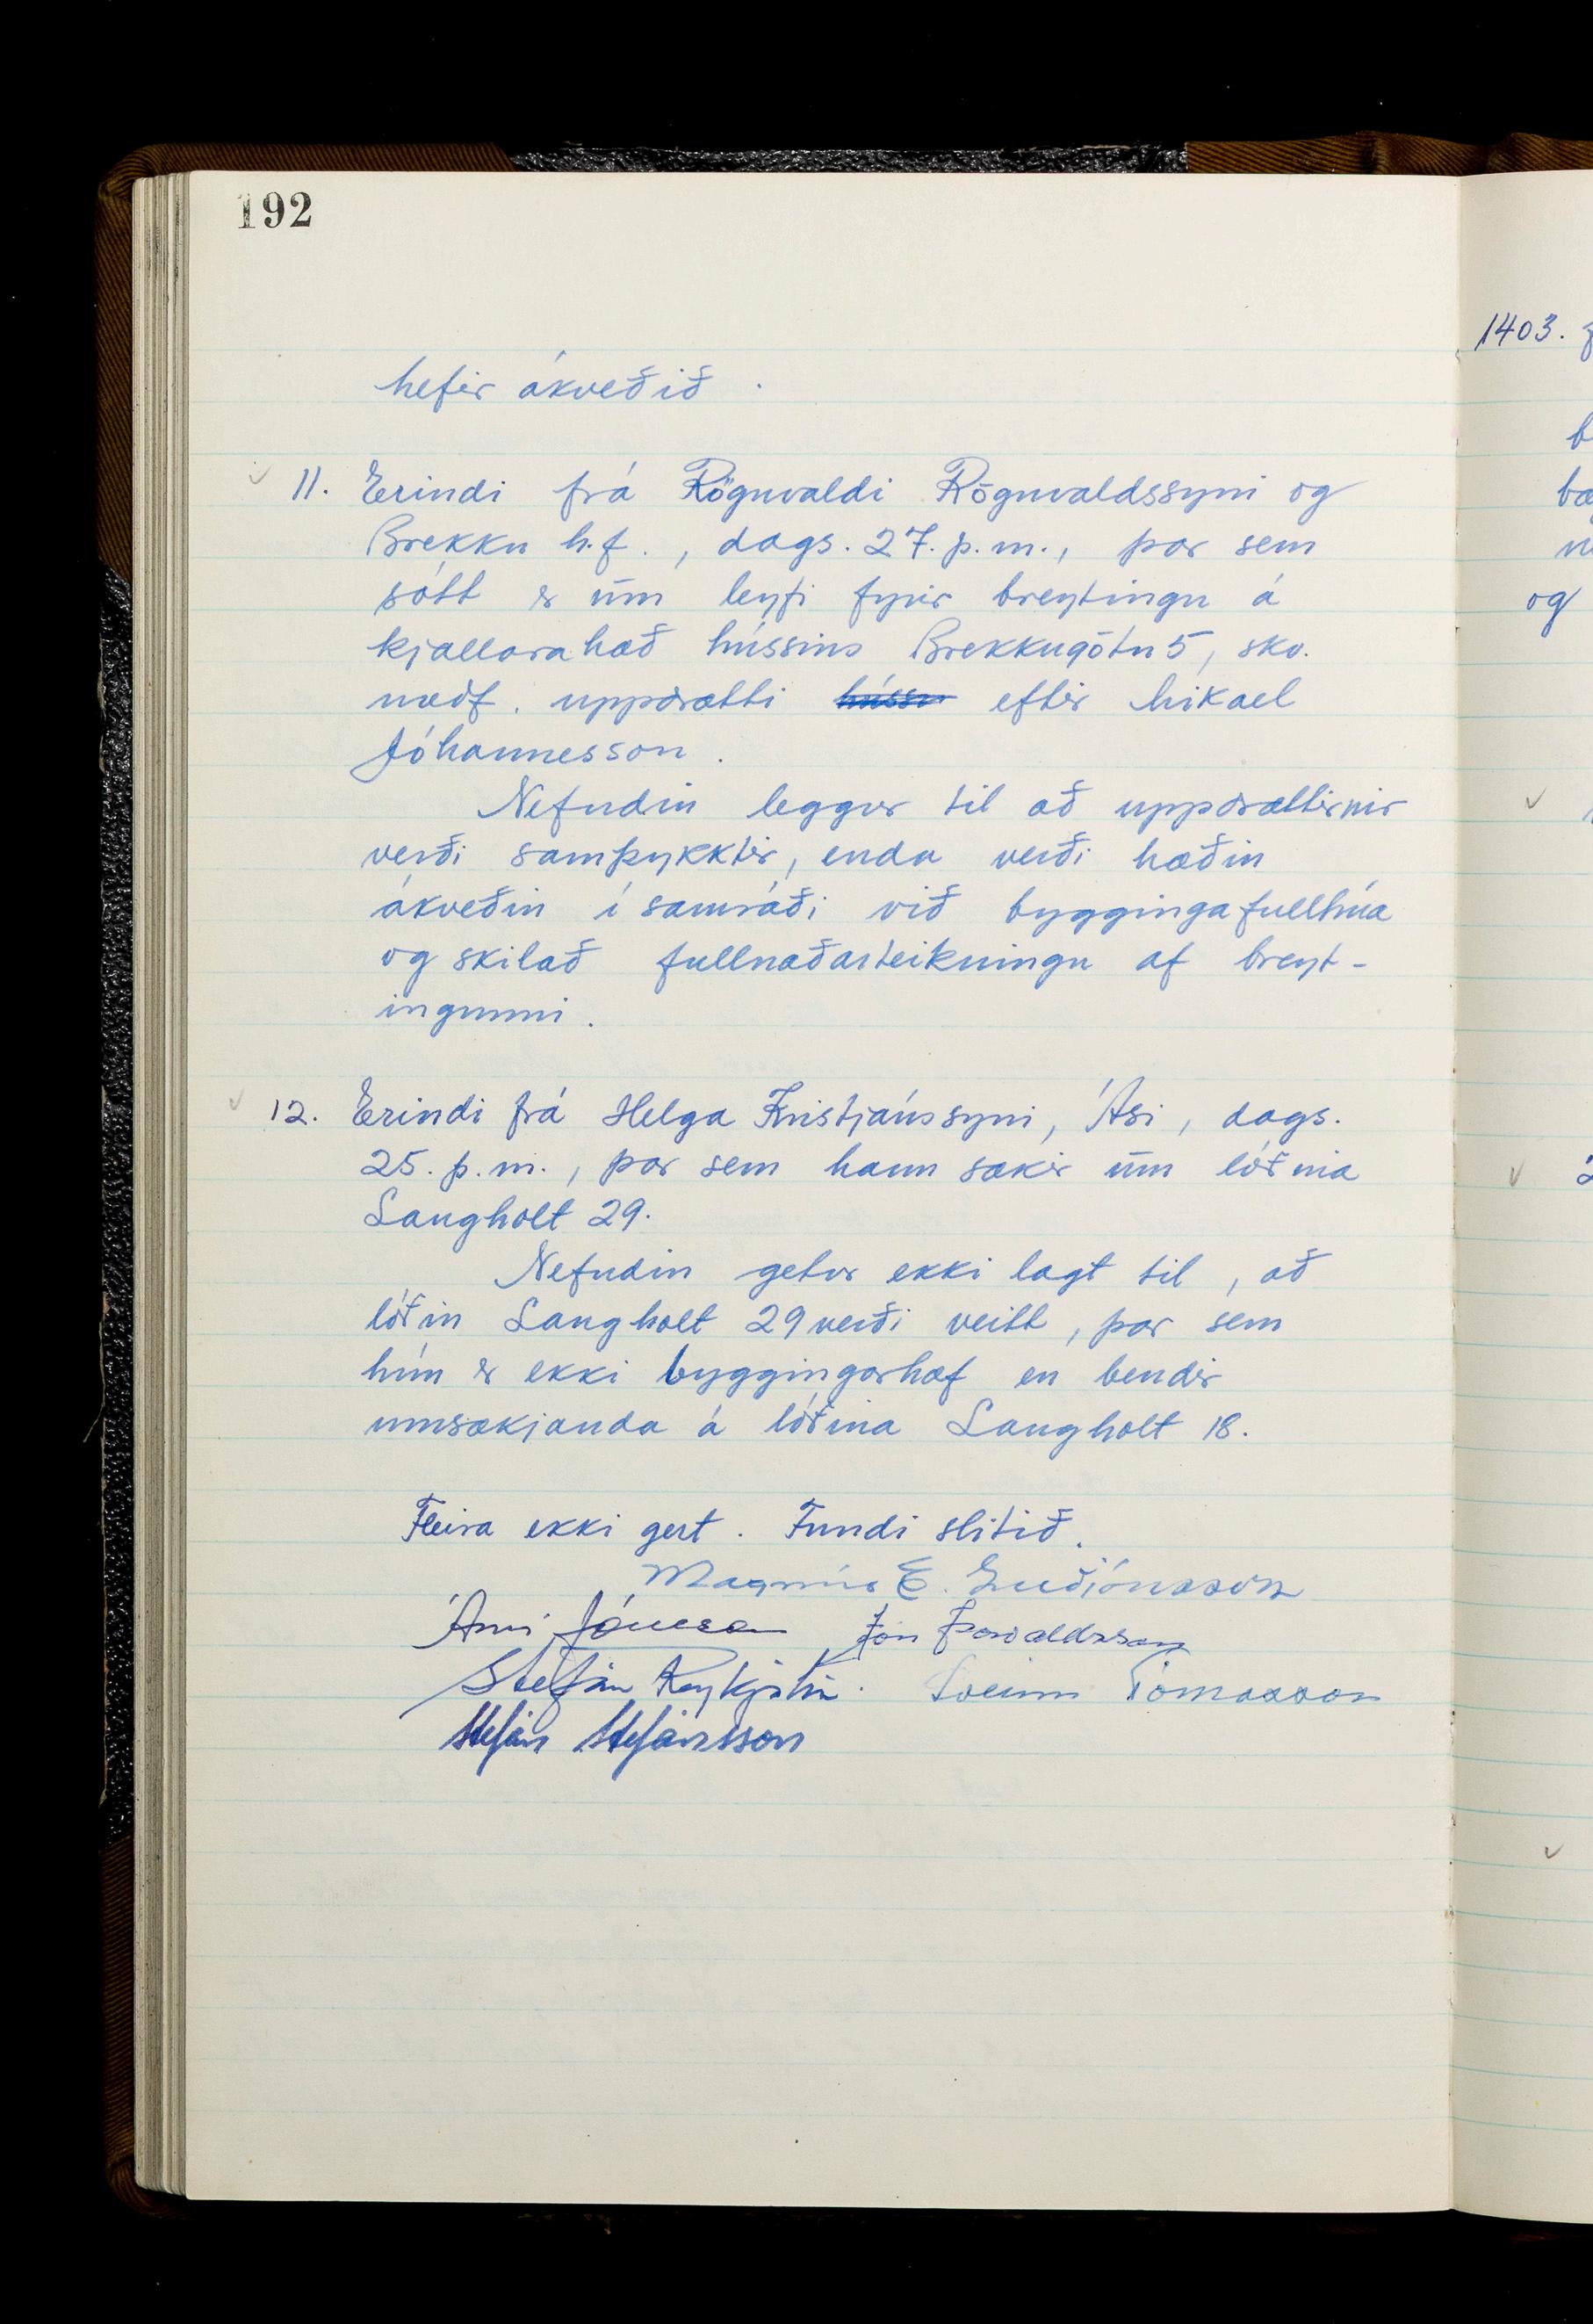 192
hefir ákveðið.
11. Erindi frá Rögnvaldi Rögnvaldssyni og
Brekku h.f., dags. 27. þ.m., þar sem
sótt er um leyfi fyrir breytingu á
kjallarahæð hússins Brekkugötu 5, skv.
meðf. uppdrætti hússi eftir Mikael
Jóhannesson.
Nefndin leggur til að uppdrættirnir
verði samþykktir, enda verði hæðin
ákveðin í samráði við byggingafulltrúa
og skilað fullnaðarteikningu af breyt-
ingunni.
12. Erindi frá Helga Kristjánssyni, Ási, dags.
25. þ.m., þar sem hann sækir um lóðina
Langholt 29.
Nefndin getur ekki lagt til, að
lóðin Langholt 29 verði veitt, þar sem
hún er ekki byggingarhæf en bendir
umsækjanda á lóðina Langholt 18.
Fleira ekki gert. Fundi slitið.
Magnús E. Guðjónsson
Árni Jónsson Jón Þorvaldsson
Stefán Reykjalín. Sveinn Tómasson
Stefán Stefánsson
1403.
og